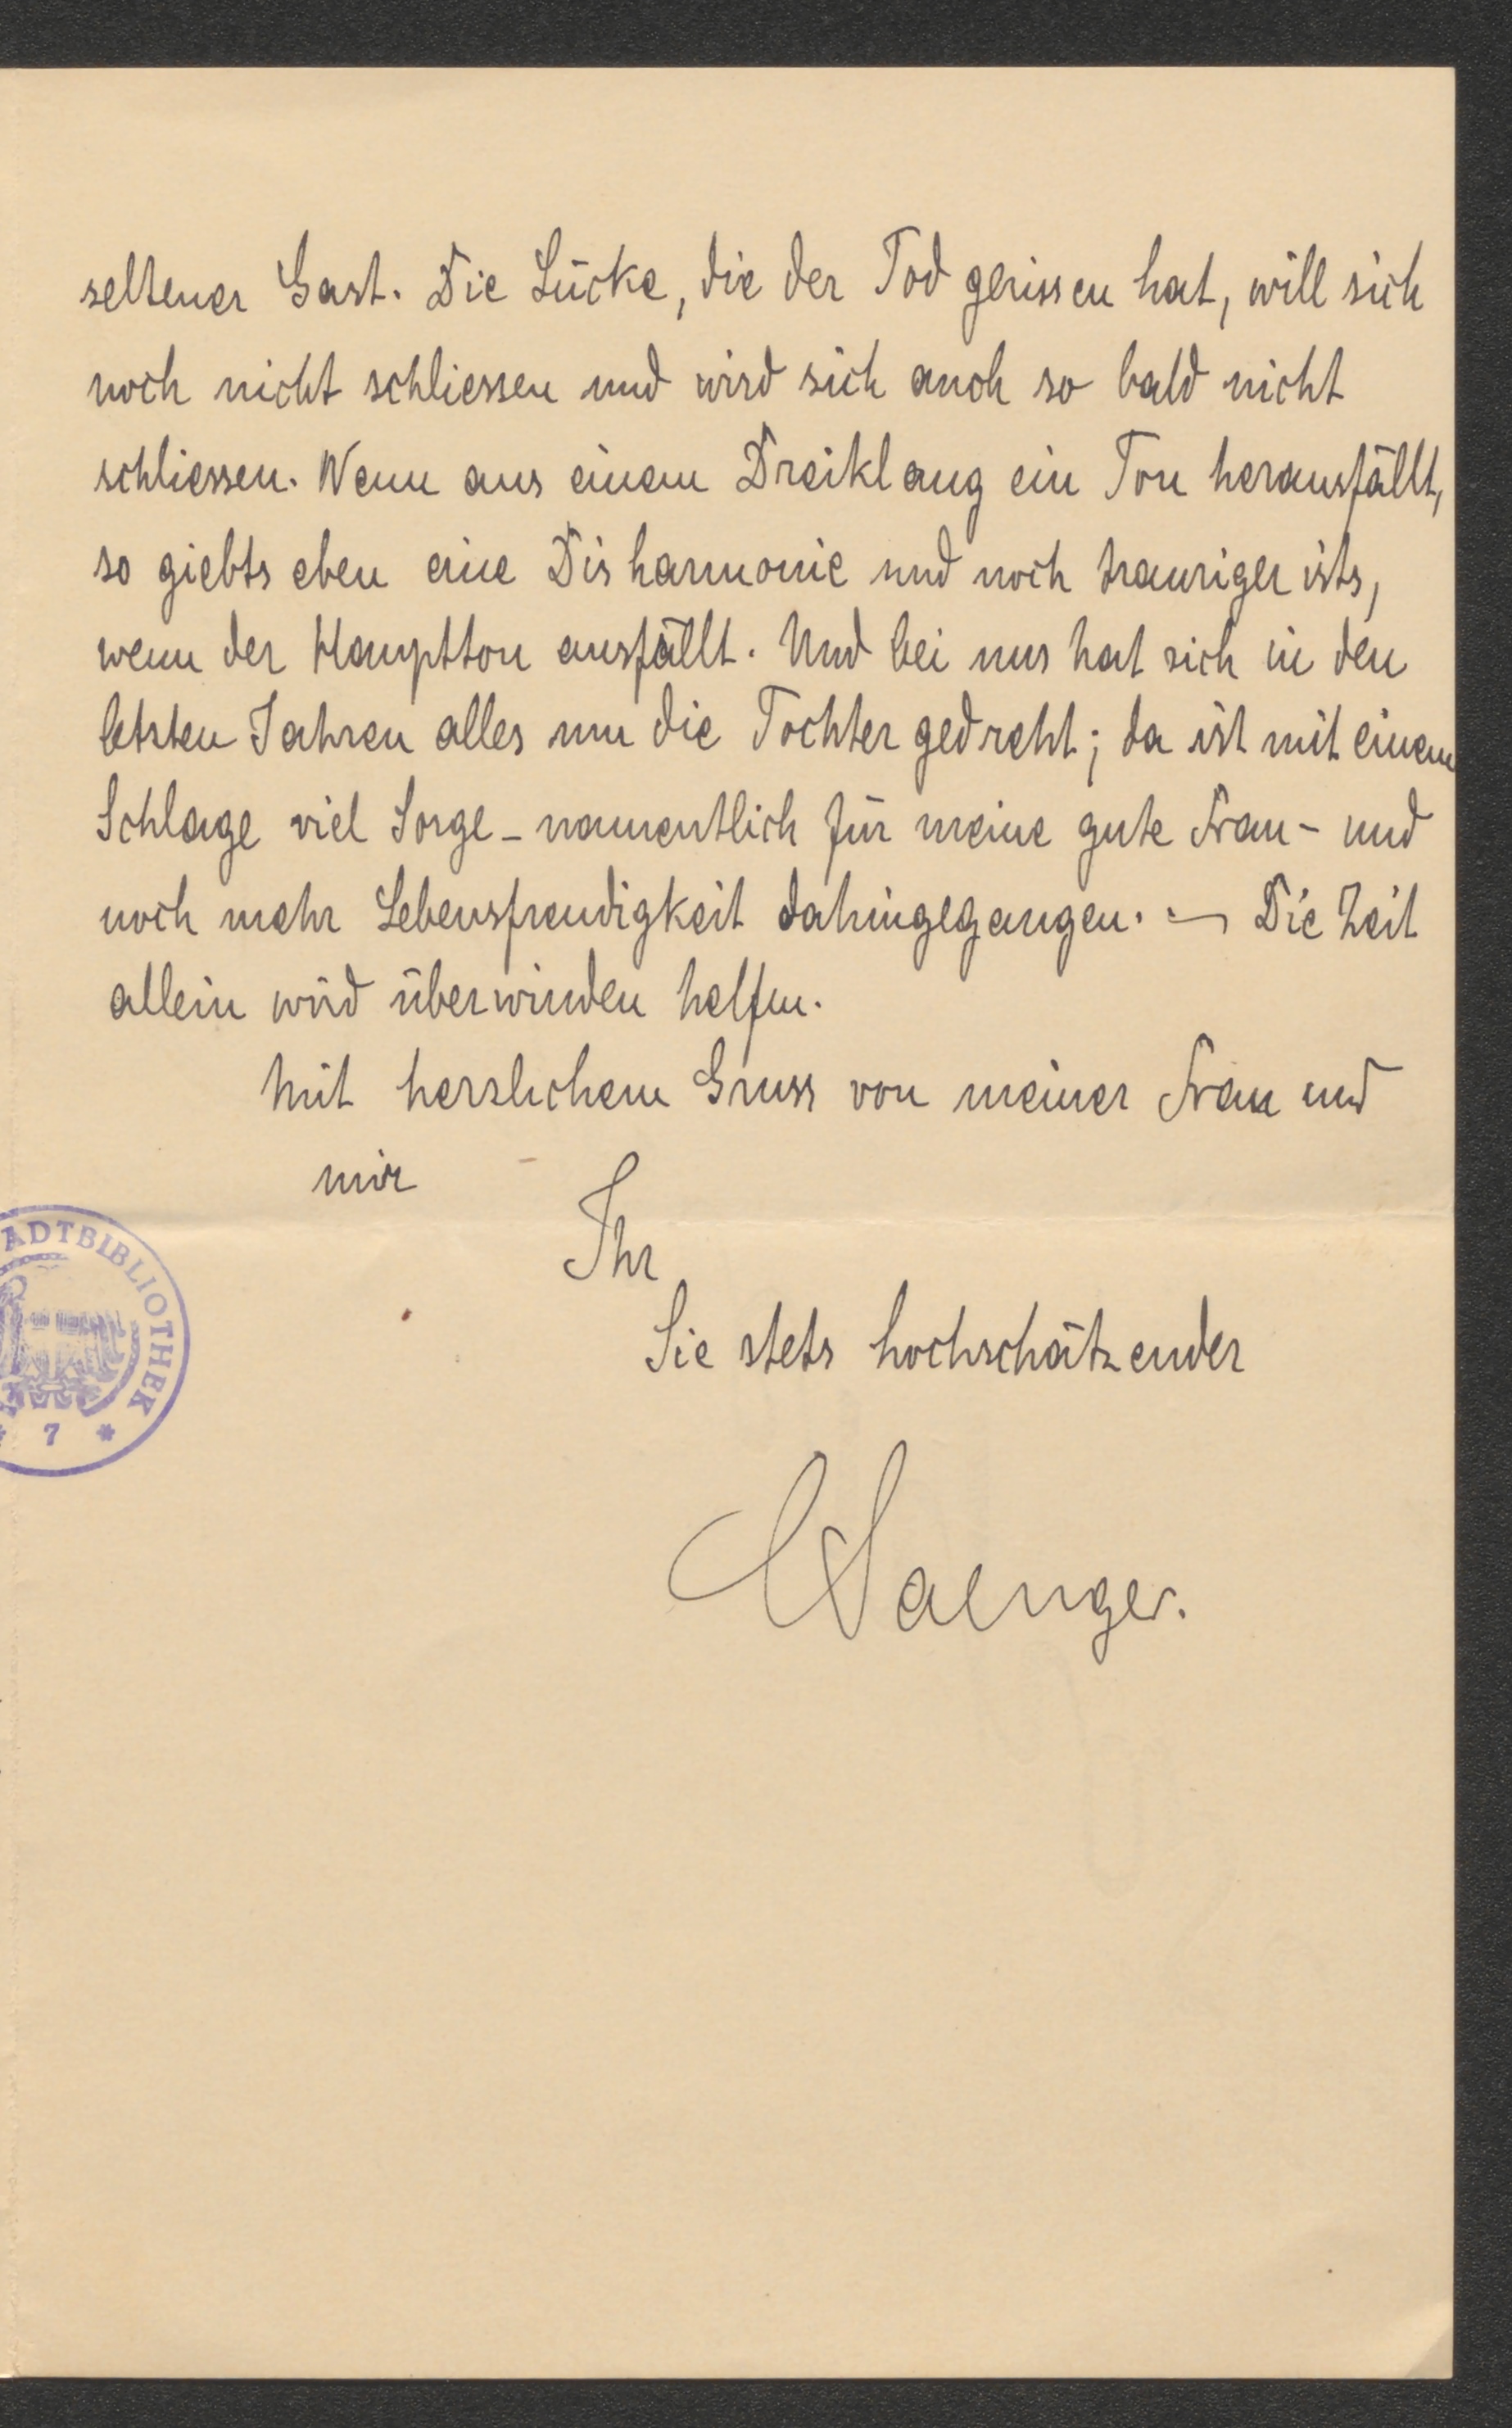 seltener Gast. Die Lücke, die der Tod gerissen hat, will sich
noch nicht schliessen und wird sich auch so bald nicht
schliessen. Wenn aus einem Dreiklang ein Ton herausfällt,
so giebts eben eine Disharmonie und noch trauriger ists,
wenn der Hauptton ausfällt. Und bei uns hat sich in den
letzten Jahren alles um die Tochter gedreht; da ist mit einem
Schlage viel Sorge - namentlich für meine gute Frau - und
noch mehr Lebensfreudigkeit dahingegangen. — Die Zeit
allein wird überwinden helfen.
Mit herzlichem Gruss von meiner Frau und
mir
Ihr
Sie stets hochschätzender
ADTBIBLIOTHEK
* 7 *
Saenger.